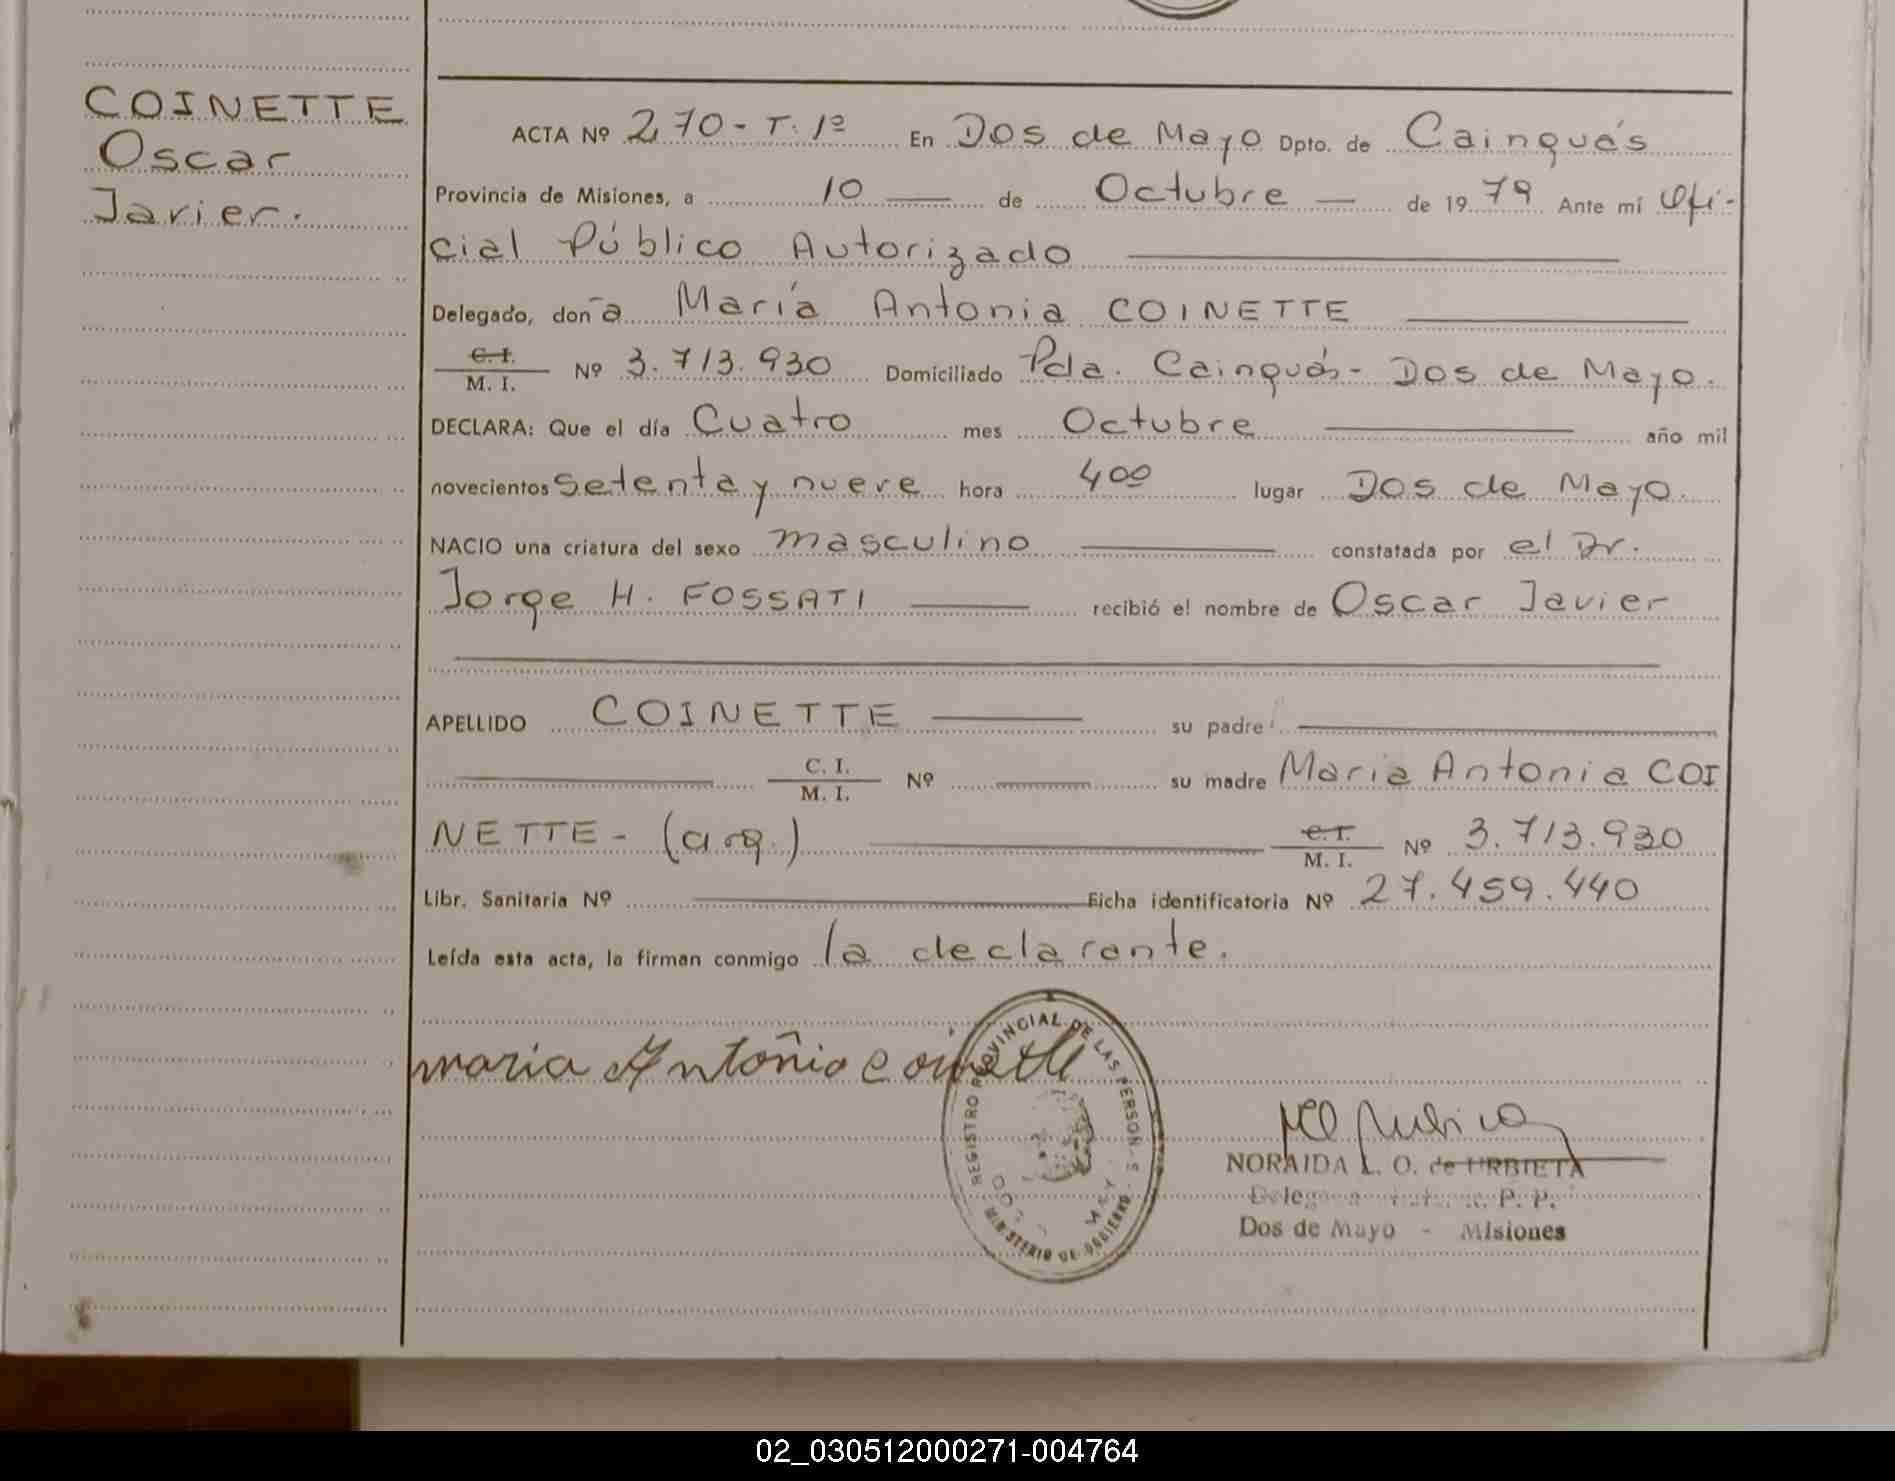 COINETTE
Oscar
Javier.
ACTA Nº 270 - T. 1º En Dos de Mayo Dpto. de Cainguás
Provincia de Misiones, a 10 — de Octubre — de 1979 Ante mí Ofi-
cial Público Autorizado
Delegado, doña María Antonia COINETTE
C.I. / M. I. Nº 3.713.930 Domiciliado Pda. Cainguás - Dos de Mayo.
DECLARA: Que el día Cuatro mes Octubre año mil
novecientos setenta y nueve hora 4oo lugar Dos de Mayo.
NACIO una criatura del sexo masculino constatada por el Dr.
Jorge H. FOSSATI recibió el nombre de Oscar Javier
APELLIDO COINETTE su padre
C. I. / M. I. Nº su madre Maria Antonia COI
NETTE - (arg.) C.I. / M. I. Nº 3.713.930
Libr. Sanitaria Nº Ficha identificatoria Nº 27.459.440
Leída esta acta, la firman conmigo la declarante.
maria Antoñia coinette
REGISTRO PROVINCIAL DE LAS PERSONAS
MINISTERIO DE GOBIERNO
NORAIDA L. O. de URBIETA
P. P.
Dos de Mayo - Misiones
02_030512000271-004764